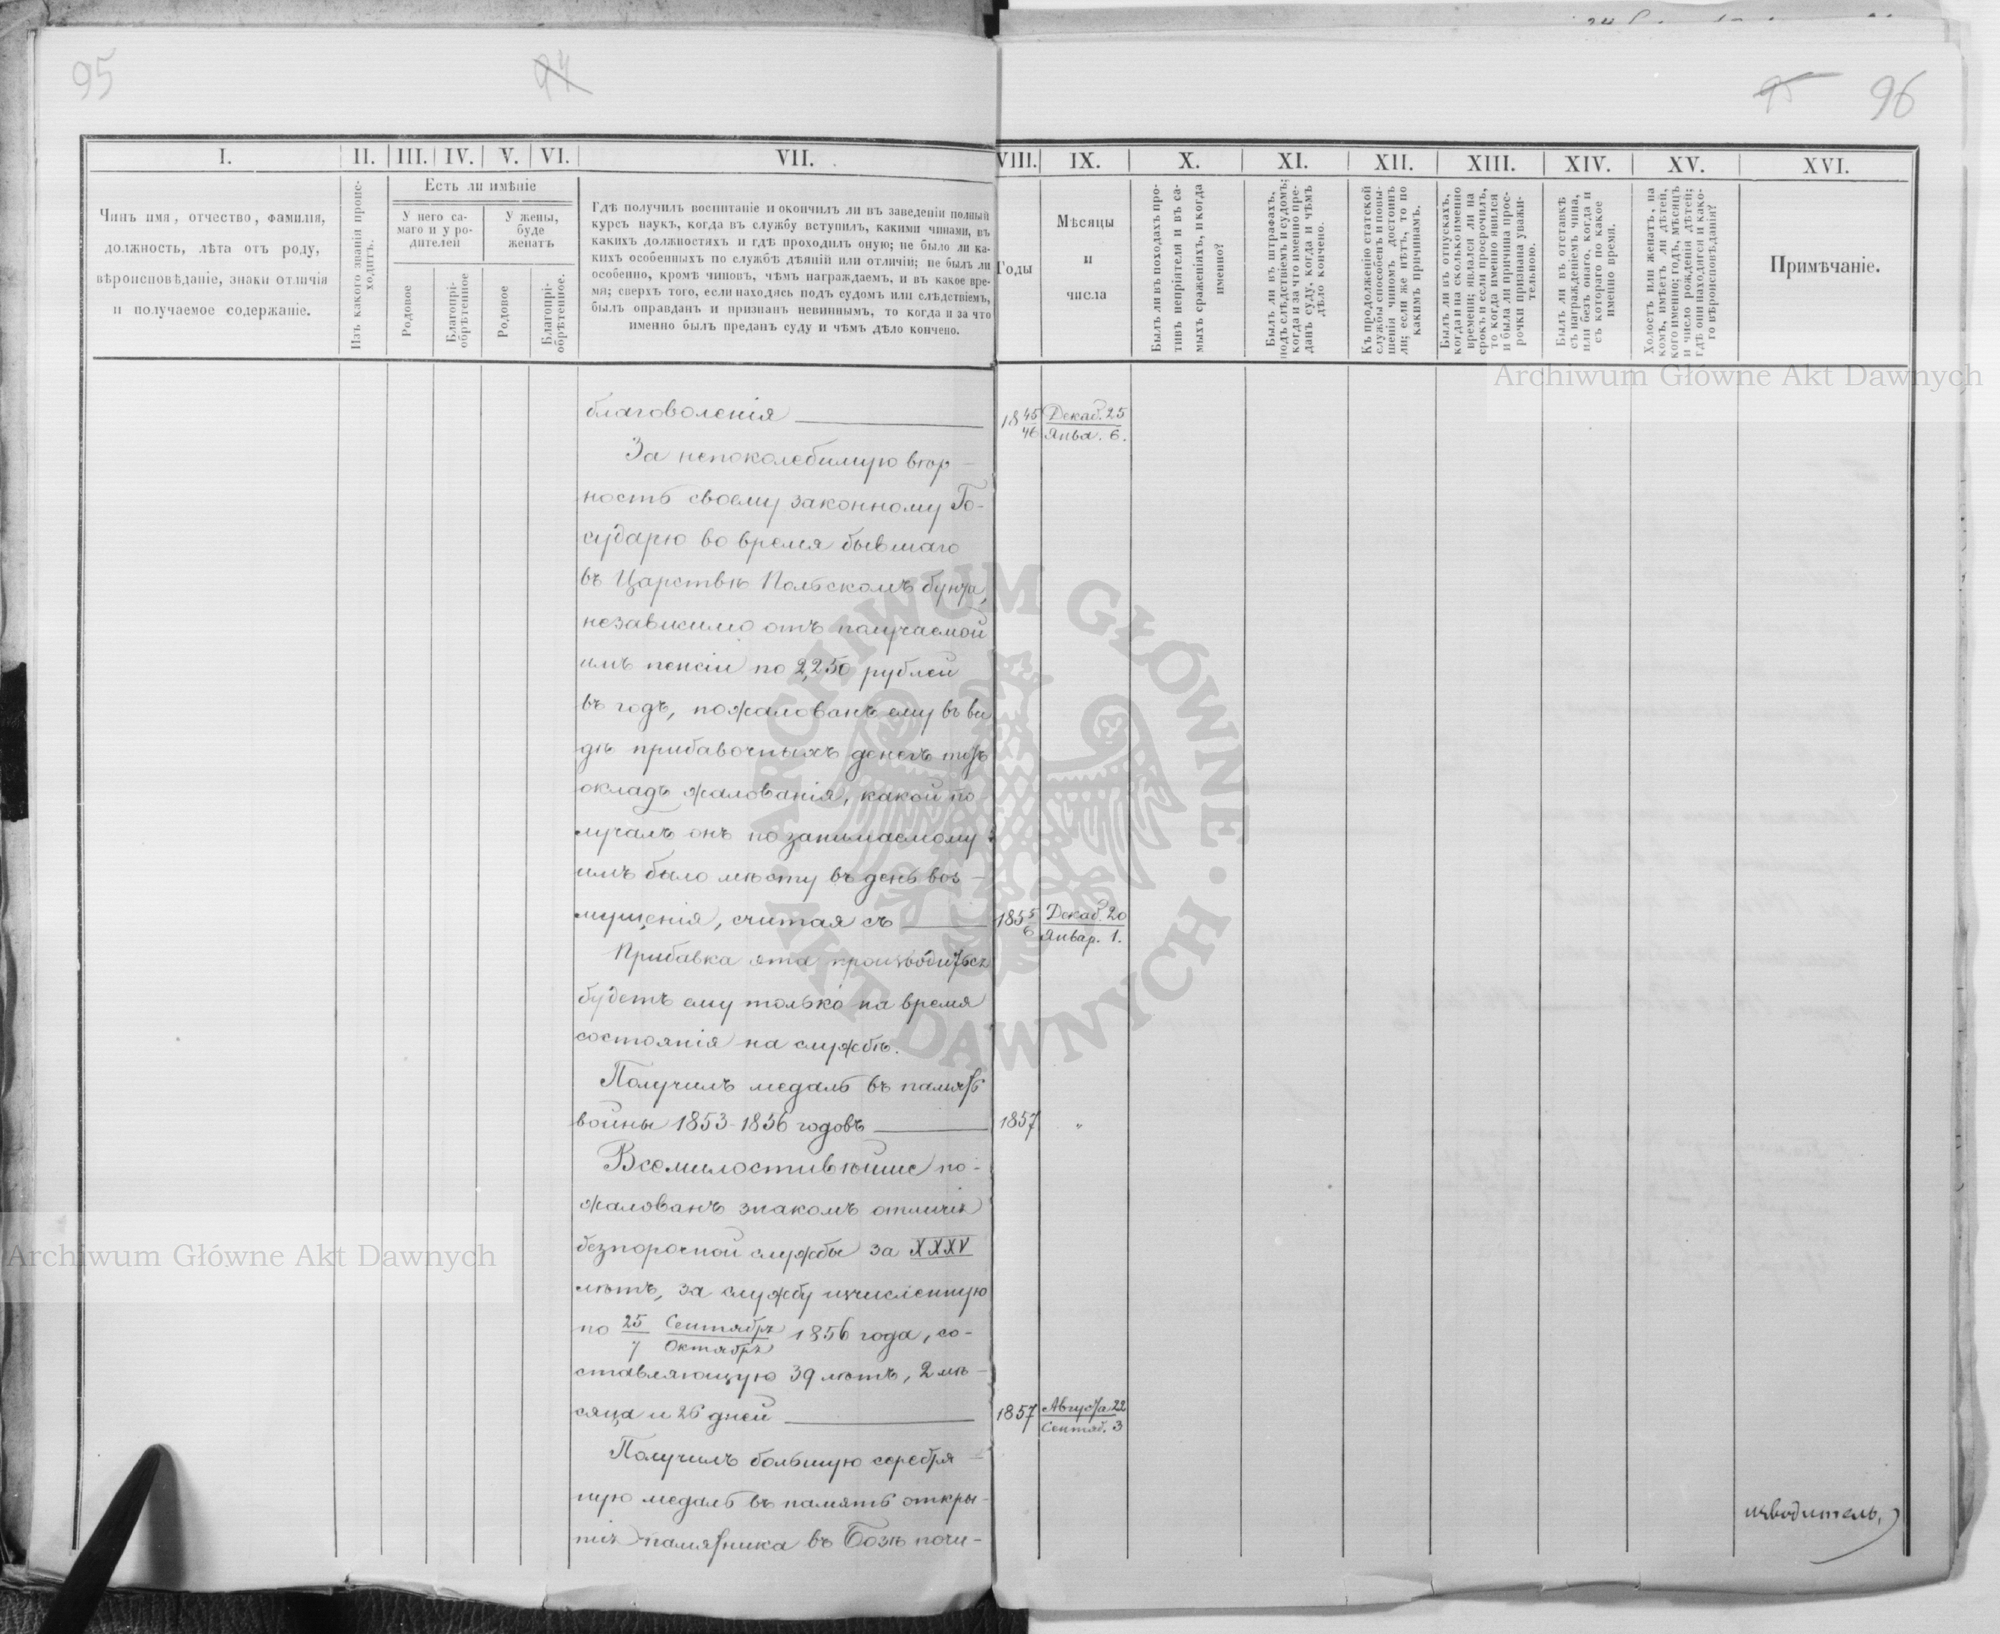 95
94
95
96
I.
II.
III.
IV.
V.
VI.
VII.
VIII.
IX.
X.
XI.
XII.
XIII.
XIV.
XV.
XVI.
Чинъ имя, отчество, фамилія,
должность, лѣта отъ роду,
вѣроисповѣданіе, знаки отличія
и получаемое содержаніе.
Изъ какого званія проис-
ходитъ.
Есть ли имѣніе
У него са-
маго и у ро-
дителей
У жены,
буде
женатъ
Родовое
Благопрі-
обрѣтенное
Родовое
Благопрі-
обрѣтенное.
Гдѣ получилъ воспитаніе и окончилъ ли въ заведеніи полный
курсъ наукъ, когда въ службу вступилъ, какими чинами, въ
какихъ должностяхъ и гдѣ проходилъ оную; не было ли ка-
кихъ особенныхъ по службѣ дѣяній или отличій; не былъ ли
особенно, кромѣ чиновъ, чѣмъ награждаемъ, и въ какое вре-
мя; сверхъ того, если находясь подъ судомъ или слѣдствіемъ,
былъ оправданъ и признанъ невиннымъ, то когда и за что
именно былъ преданъ суду и чѣмъ дѣло кончено.
Годы
Мѣсяцы
и
числа
Былъ ли въ походахъ про-
тивъ непріятеля и въ са-
мыхъ сраженіяхъ, и когда
именно?
Былъ ли въ штрафахъ,
подъ слѣдствіемъ и судомъ;
когда и за что именно пре-
данъ суду, когда и чѣмъ
дѣло кончено.
Къ продолженію статской
службы способенъ и повы-
шенія чиномъ достоинъ
ли; если же нѣтъ, то по
какимъ причинамъ.
Былъ ли въ отпускахъ,
когда и на сколько именно
времени; являлся ли на
срокъ и если просрочилъ,
то когда именно явился
и была ли причина прос-
рочки признана уважи-
тельною.
Былъ ли въ отставкѣ
съ награжденіемъ чина,
или безъ онаго, когда и
съ котораго по какое
именно время.
Холостъ или женатъ, на
комъ, имѣетъ ли дѣтей,
кого именно; годъ, мѣсяцъ
и число рожденія дѣтей;
гдѣ они находятся и како-
го вѣроисповѣданія?
Примѣчаніе.
благоволенія
1845/46 Декаб. 25
Янва. 6.
За непоколебимую вѣр-
ность своему законному Го-
сударю во время бывшаго
въ Царствѣ Польскомъ бунта,
независимо отъ получаемой
имъ пенсіи по 2,250 рублей
въ годъ, пожалованъ ему въ ви
дѣ прибавочныхъ денегъ тотъ
окладъ жалованія, какой по
лучалъ онъ по занимаемому
имъ было мѣсту въ день воз-
мущенія, считая съ
1855/6 Декаб. 20
Январ. 1.
Прибавка эта производиться
будетъ ему только на время
состоянія на службѣ.
Получилъ медаль въ память
войны 1853-1856 годовъ
1857 "
Всемилостивѣйше по-
жалованъ знакомъ отличія
безпорочной службы за XXXV
лѣтъ, за службу изчисленную
по 25/7 Сентября/Октября 1856 года, со-
ставляющую 39 лѣтъ, 2 мѣ-
сяца и 26 дней
1857 Августа 22
Сентяб. 3
Получилъ большую серебря-
ную медаль въ память откры-
тія памятника въ Бозѣ почи-
изводитель,
Archiwum Główne Akt Dawnych
Archiwum Główne Akt Dawnych
ARCHIWUM GŁÓWNE · AKT DAWNYCH ·